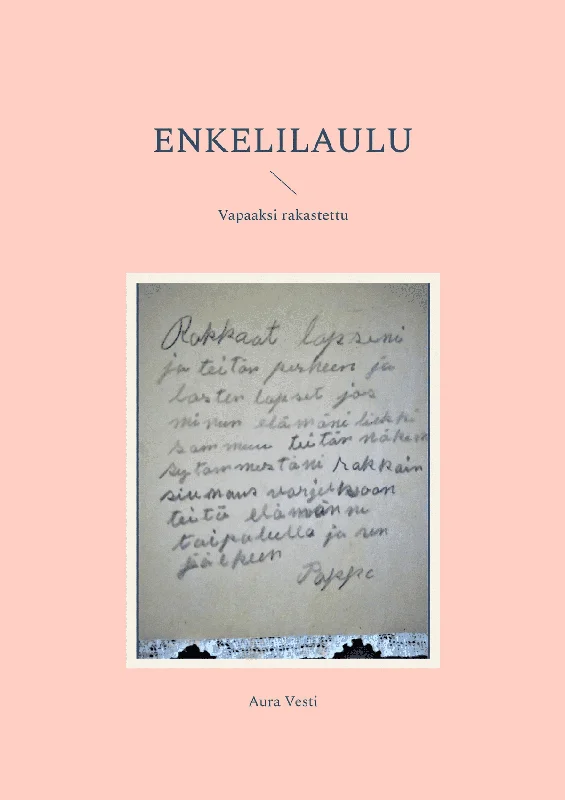 ENKELILAULU
Vapaaksi rakastettu
Rakkaat lapseni
ja teitän perheen ja
lasten lapset jos
minun elämäni liekki
sammuu teitän näkem
sytammestäni rakkain
siunaus varjelkoon
teitä elämänne
taipalella ja sen
jäälkeen
Pappa
Aura Vesti